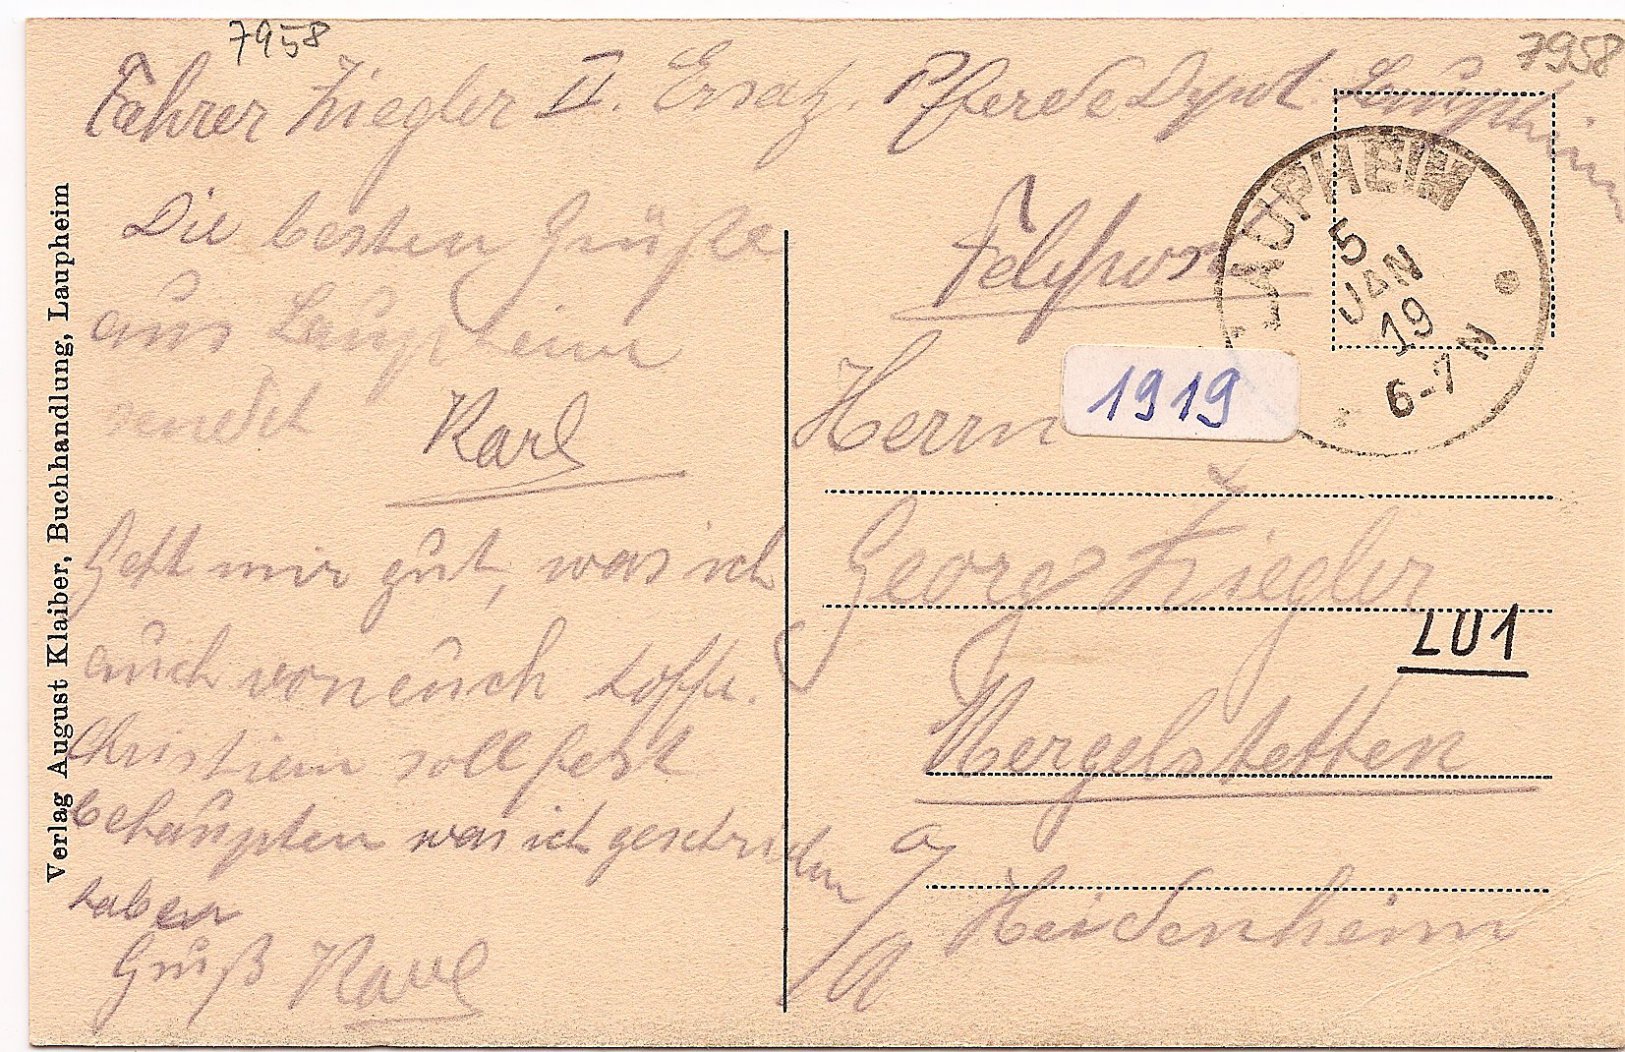 7958
7958
Fahrer Ziegler II. Ersatz. Pferde Depot. Laupheim
Die besten Grüße
aus Laupheim
sendet
Karl
Geht mir gut, was ich
auch von euch hoffe.
Christian soll fest
behaupten was ich geschrieben
haben
Gruß Karl
Verlag August Klaiber, Buchhandlung, Laupheim
Feldpost
LAUPHEIM
5
JAN
19
6-7 N
1919
Herrn
Georg Ziegler
LU1
Mergelstetten
a/
Heidenheim